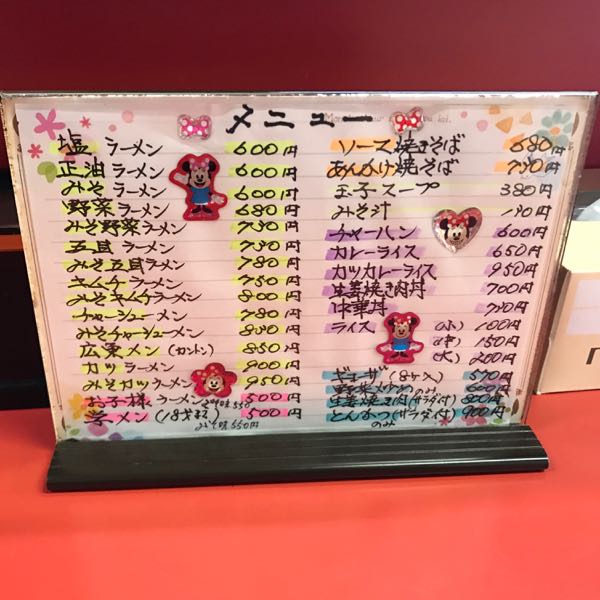 メニュー
塩ラーメン 600円
正油ラーメン 600円
みそラーメン 600円
野菜ラーメン 680円
みそ野菜ラーメン 730円
五目ラーメン 730円
みそ五目ラーメン 780円
キムチラーメン 750円
みそキムチラーメン 800円
チャーシューメン 780円
みそチャーシューメン 830円
広東メン(カントン) 850円
カツラーメン 900円
みそカツラーメン 950円
お子様ラーメン 500円
みそ味550
学メン(18才まで) 500円
みそ味550円
ソース焼きそば 680円
あんかけ焼そば 780円
玉子スープ 380円
みそ汁
チャーハン 600円
カレーライス 650円
カツカレーライス 950円
生姜焼き肉丼 700円
中華丼 780円
ライス(小) 100円
(中) 150
(大) 200円
ギョーザ(8ケ入) 570円
野菜メンのみ 600円
生姜焼き肉(サラダ付) 800円
とんかつ(サラダ付) 900円
のみ